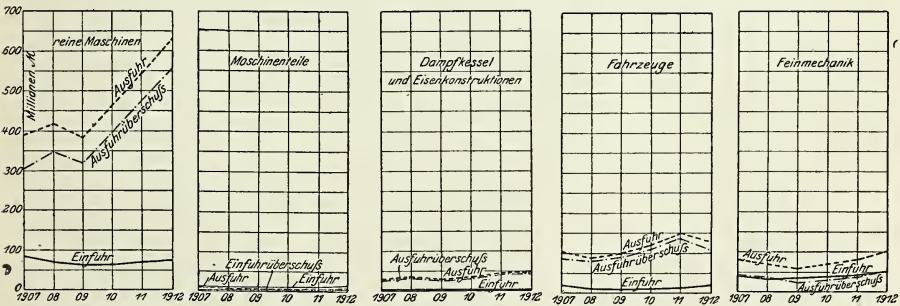 700
600
500
400
300
200
100
0
Millianen M.
reine Maschinen
Ausfuhr
Ausfuhrüberschuſs
Einfuhr
1907 08 09 10 11 1912
Maschinenteile
Einfuhrüberschuſs
Ausfuhr
Einfuhr
1907 08 09 10 11 1912
Dampfkessel
und Eisenkonstruktionen
Ausfuhrüberschuſs
Ausfuhr
Einfuhr
1907 08 09 10 11 1912
Fahrzeuge
Ausfuhr
Ausfuhrüberschuſs
Einfuhr
1907 08 09 10 11 1912
Feinmechanik
Ausfuhr
Einfuhr
Ausfuhrüberschuſs
1907 08 09 10 11 1912